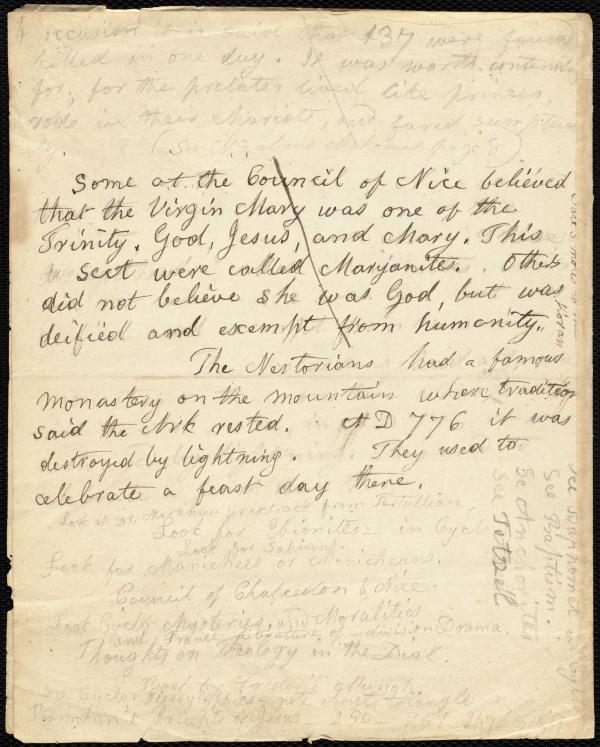 occasion it is said that 137 were found
killed in one day. It was worth contending
for; for the prelates lived like princes,
rode in their chariots, and fared sumptuous
ly. (See MS. about Mahomet page 8)
Some at the Council of Nice believed
that the Virgin Mary was one of the
Trinity. God, Jesus, and Mary. This
Sect were called Maryanites. Others
did not believe she was God, but was
deified and exempt from humanity.
The Nestorians had a famous
monastery on the mountain where tradition
said the Ark rested. A D 776 it was
destroyed by lightning. They used to
celebrate a feast day there.
Look at Dr. for extract from Tertullian,
Look for Ebionites in Cyclo
Look for Sabians.
Look for Manichees or Manicheans.
Council of Chalcedon & Nice.
Look Cyclo Mysteries, and Moralities
and France Literature of division Drama.
Thoughts on Theology in the Dial.
Book by Frederic
See Cyclo. note about triangle
of Jesus 250 - 251 - 247
Koran
See Mahomet in Cyclo
See Baptism.
See Anchorites
See